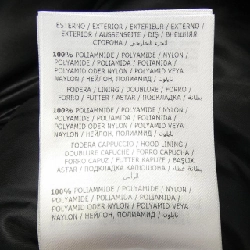 ESTERNO / EXTERIOR / EXTERIEUR / EXTERNO /
EXTERIOR / AUSSENSEITE / DIŞ / ВНЕШНЯЯ
СТОРОНА /
100% POLIAMMIDE / POLYAMIDE / NYLON /
POLYAMIDE / POLIAMIDA / POLIAMIDA /
POLYAMID ODER NYLON / POLYAMID VEYA
NAYLON / НЕЙЛОН, ПОЛИАМИД / نايلون
FODERA / LINING / DOUBLURE / FORRO /
FORRO / FUTTER / ASTAR / ПОДКЛАДКА / بطانة
100% POLIAMMIDE / POLYAMIDE / NYLON /
POLYAMIDE / POLIAMIDA / POLIAMIDA /
POLYAMID ODER NYLON / POLYAMID VEYA
NAYLON / НЕЙЛОН, ПОЛИАМИД / نايلون
FODERA CAPPUCCIO / HOOD LINING /
DOUBLURE CAPUCHE / FORRO CAPUCHA /
FORRO CAPUZ / FUTTER KAPUZE / BAŞLIK
ASTARI / ПОДКЛАДКА КАПЮШОНА / بطانة
100% POLIAMMIDE / POLYAMIDE / NYLON /
POLYAMIDE / POLIAMIDA / POLIAMIDA /
POLYAMID ODER NYLON / POLYAMID VEYA
NAYLON / НЕЙЛОН, ПОЛИАМИД / نايلون